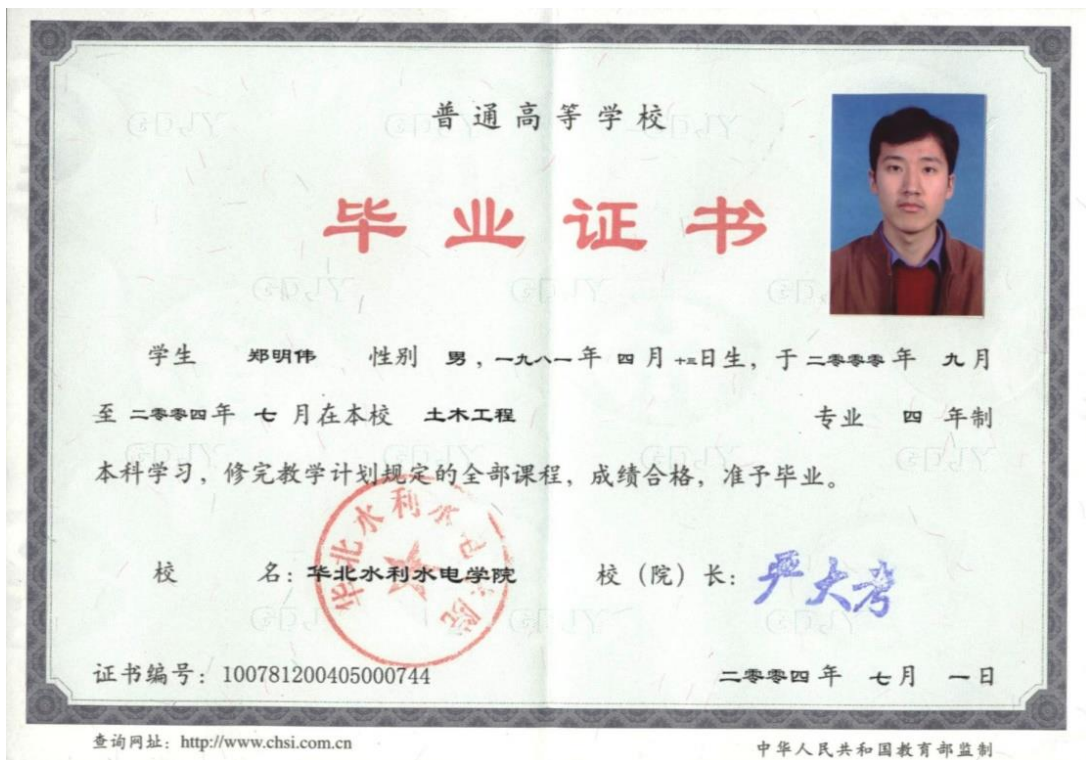 普通高等学校
毕业证书
学生 郑明伟 性别 男，一九八一年 四 月 十三日生，于 二零零零 年 九 月
至 二零零四年 七 月在本校 土木工程 专业 四 年制
本科学习，修完教学计划规定的全部课程，成绩合格，准予毕业。
校 名：华北水利水电学院 校（院）长：严大考
华北水利水电学院
证书编号：100781200405000744 二零零四 年 七月 一日
查询网址：http://www.chsi.com.cn 中华人民共和国教育部监制